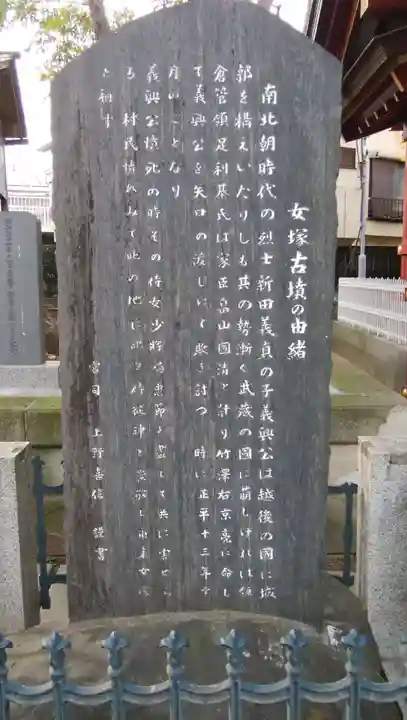 女塚古墳の由緒
南北朝時代の烈士新田義貞の子義興公は越後の國に城
郭を構えいたりしも其の勢漸く武蔵の國に萌しければ鎌
倉管領足利基氏は家臣畠山國清と計り竹澤右京亮に命し
て義興公を矢口の渡しにて欺き討つ 時に正平十三年十
月のことなり
義興公憤死の時その侍女少将局忠節を盡して共に害せら
る 村民憐れみて此の地に
と稱す
宮司 上野嘉信 謹書